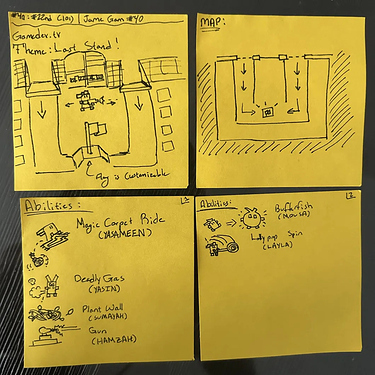 Jame Gam #40
Gamedev.tv
Theme: Last Stand!
Flag is Customizable
MAP:
Abilities:
Magic Carpet Ride
(YASAMEEN)
Deadly Gas
(YASIN)
Plant Wall
(SUMAYAH)
Gun
(HAMZAH)
Abilities:
Pufferfish
(MOUSA)
Lollypop Spin
(LAYLA)